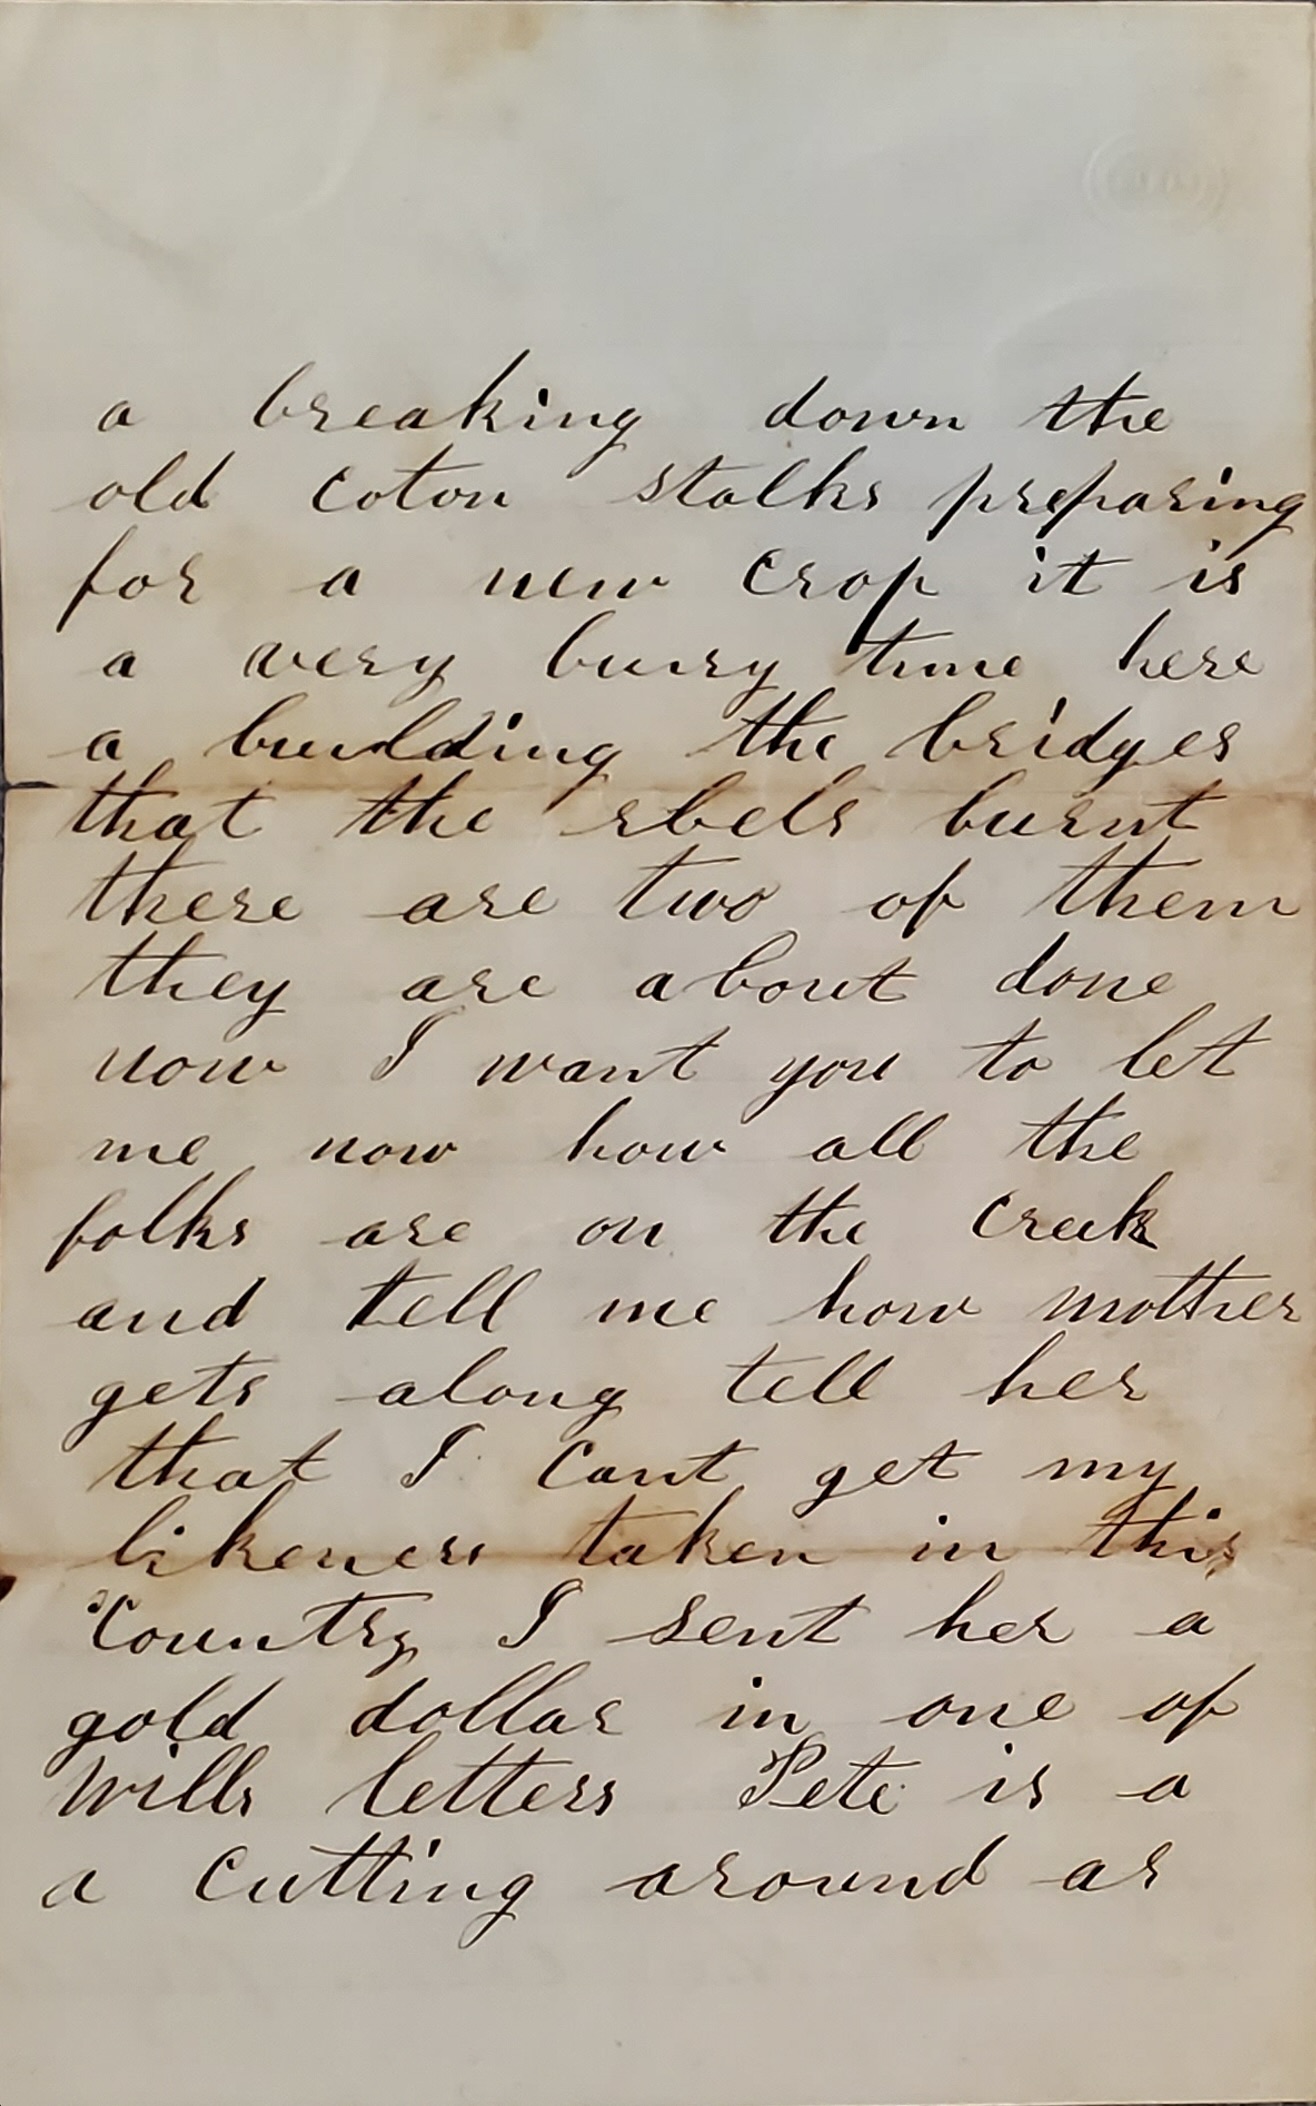 a breaking down the
old Coton stalks preparing
for a new Crop it is
a very buisy time here
a building the bridges
that the rbels burnt
there are two of them
they are about done
now I want you to let
me now how all the
folks are on the Creek
and tell me how mother
gets along tell her
that I Cant get my
likeness taken in this
Country I sent her a
gold dollar in one of
Wills letters Pete is a
a Cutting around as